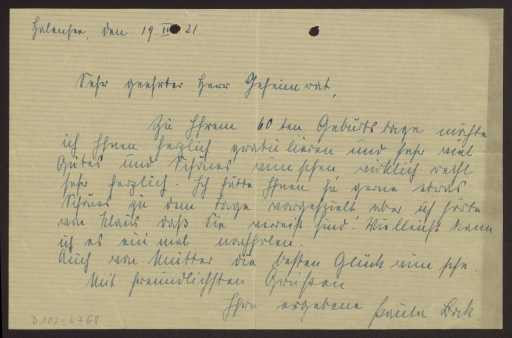 Halensee, den 19 III 21
Sehr geehrter Herr Geheimrat,
Zu Ihrem 60ten Geburtstage möchte
ich Ihnen herzlich gratulieren und sehr viel
Gutes und Schönes wünschen wirklich recht
sehr herzlich. Ich hätte Ihnen ja gerne etwas
Schönes zu dem Tage vorgespielt aber ich hörte
von Klaus daß Sie verreist sind. Vielleicht kann
ich es ein mal nachholen.
Auch von Mutter die besten Glückwünsche.
Mit freundlichsten Grüßen
Ihre ergebene Paula